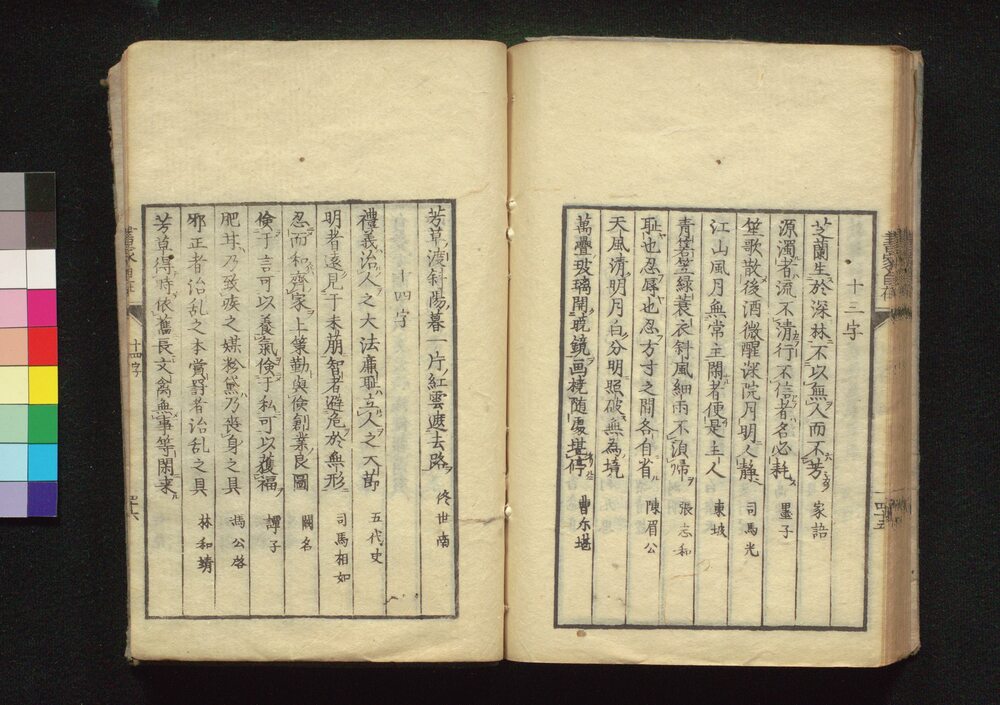 十三字
芝蘭生於深林不以無人而不芳 家語
源濁者流不清行不信者名必耗 墨子
笙歌散後酒微醒深院月明人靜 司馬光
江山風月無常主閑者便是主人 東坡
青箬笠緑蓑衣斜風細雨不須帰 張志和
耻也忍辱也忍方寸之間各自省 陳眉公
天風清明月白分明照破無為境
萬疊玻璃開暁鏡画橈随處堪停 曹尓堪
芳草渡斜陽暮一片紅雲遮去路 佟世南
十四字
禮義治人之大法廉耻立人之大節 五代史
明者遠見于未崩智者避危於無形 司馬相如
忍而和齊家上策勤與倹創業良圖 闕名
倹于言可以養氣倹于私可以獲福 譚子
肥甘乃致疾之媒粉黛乃丧身之具 馮公啓
邪正者治乱之本賞罸者治乱之具
芳草得時依舊長文禽無事等閑来 林和靖
十四字